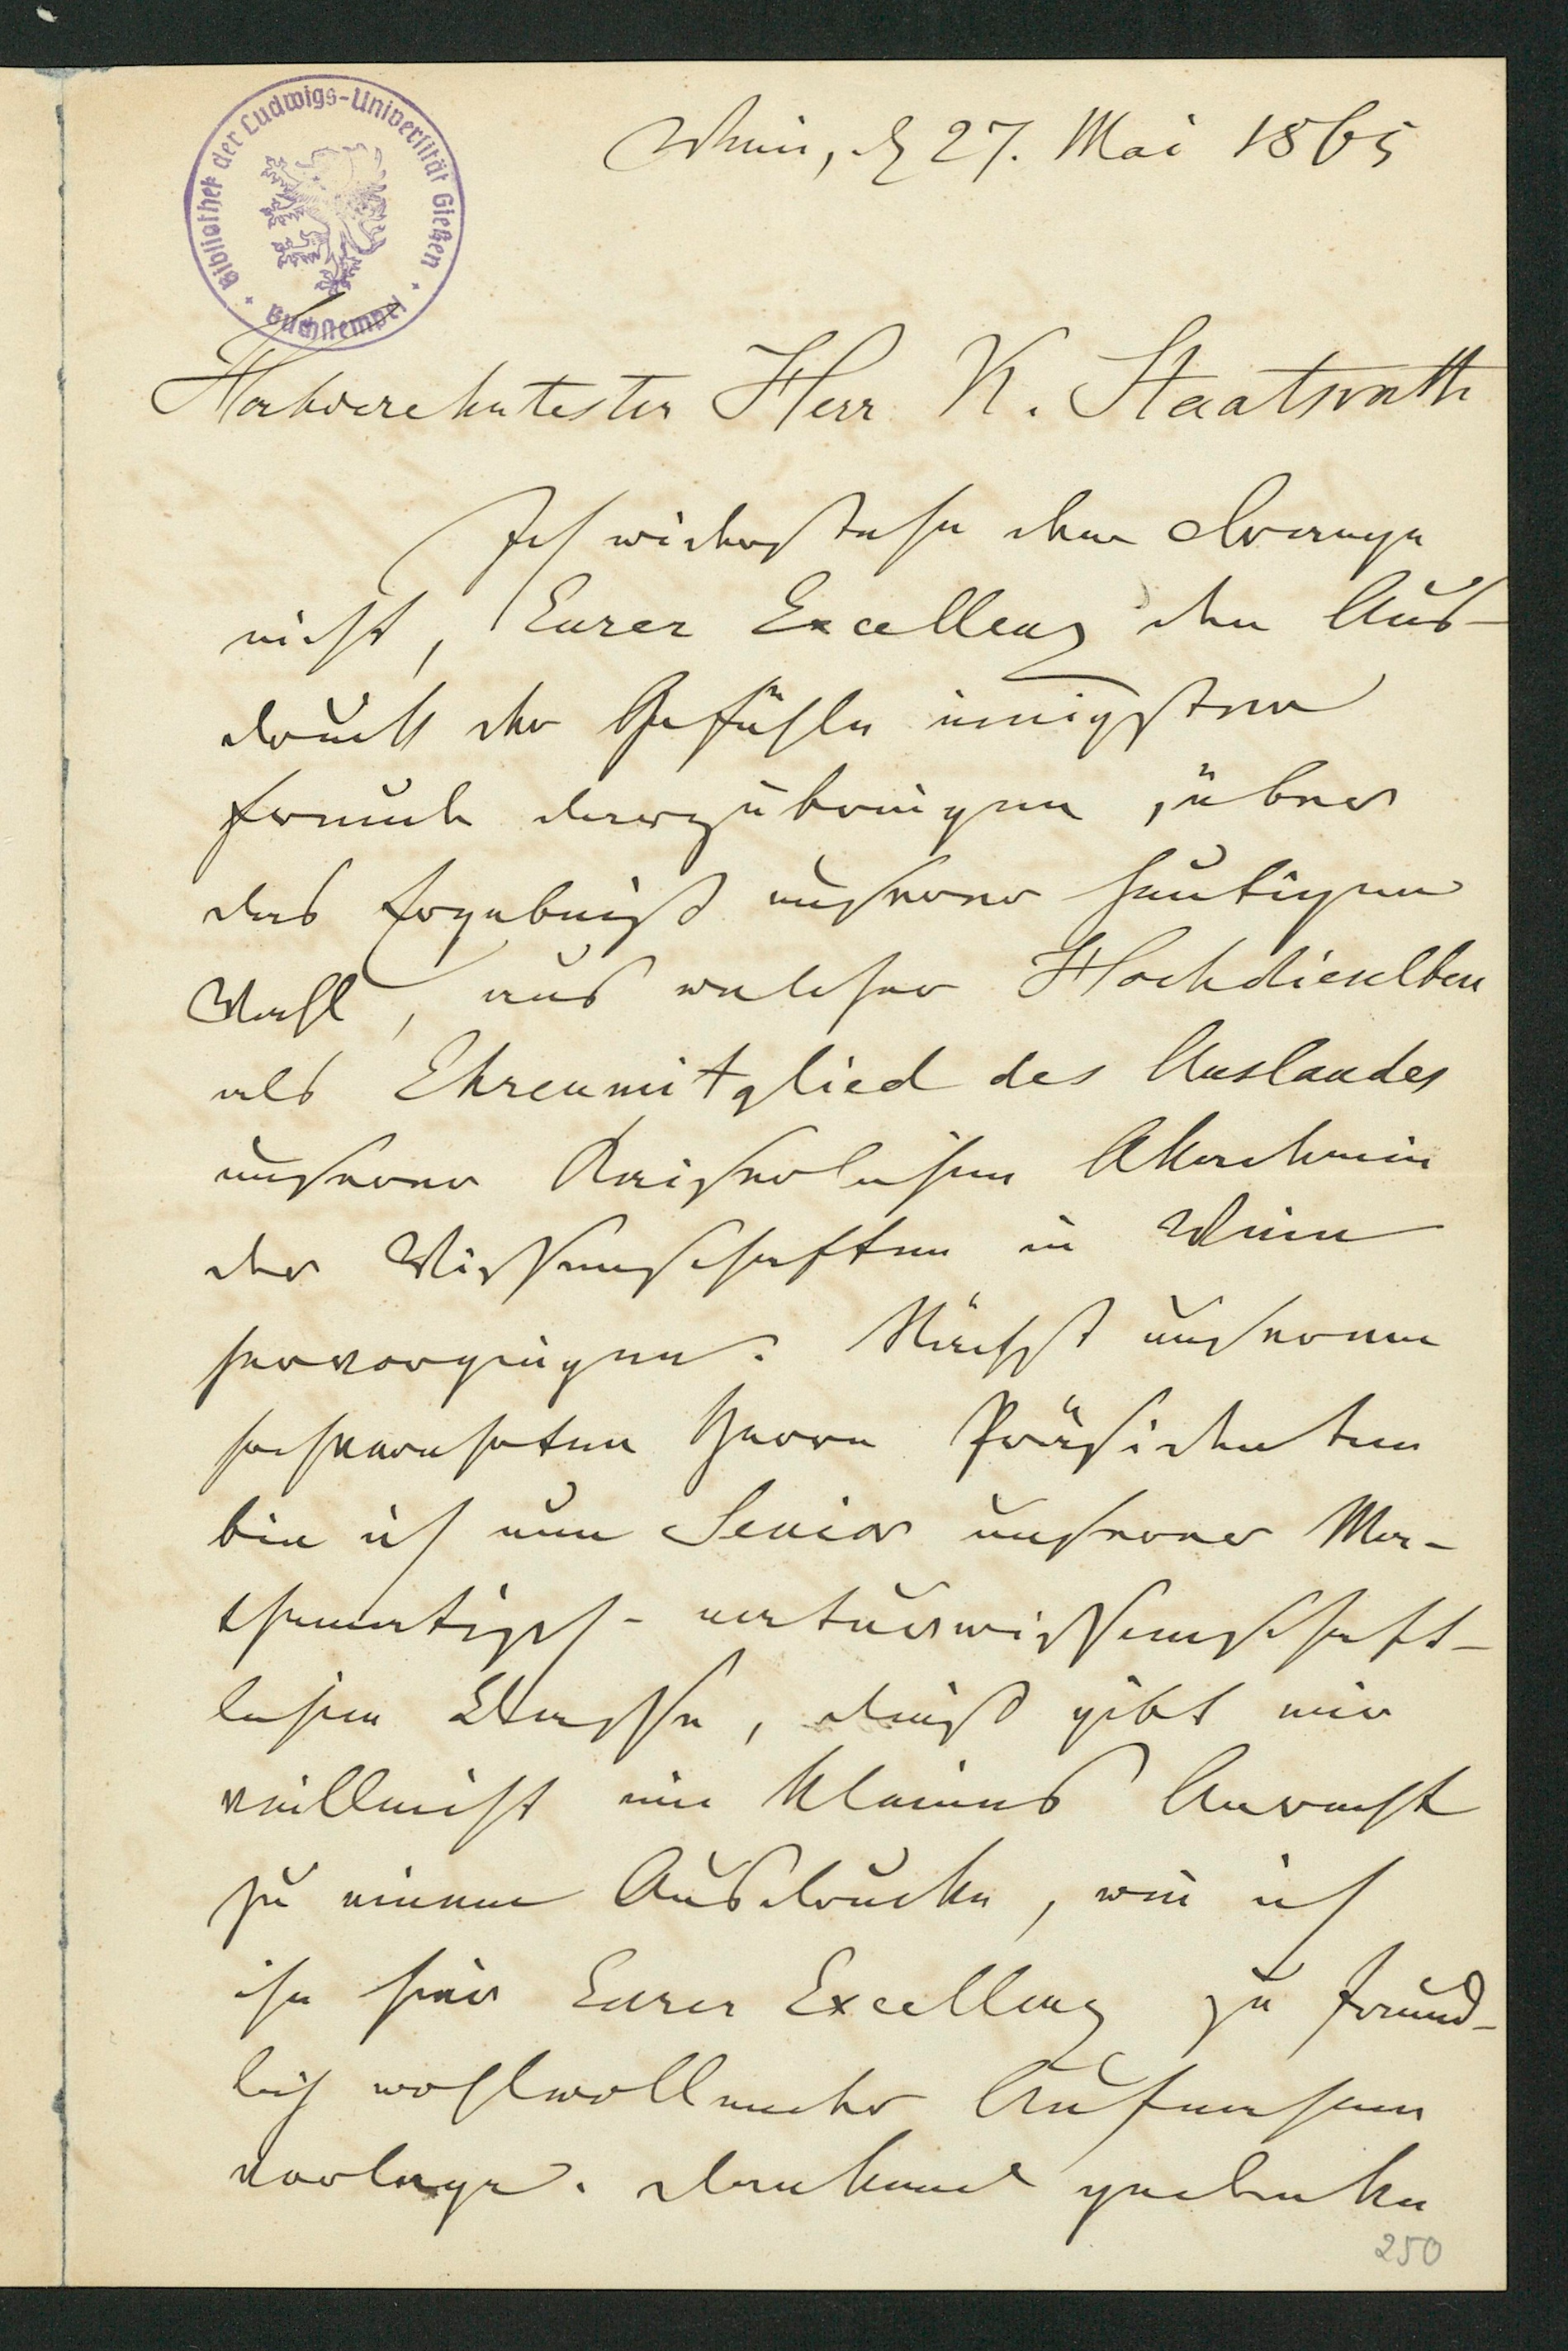 Bibliothek der Ludwigs-Universität Gießen
Buchstempel
Wien, d 27. Mai 1865
Hochverehrtester Herr K. Staatsrath
Ich widerstehe dem Drange
nicht, Eurer Excellenz den Aus-
druck der Gefühle innigster
Freude darzubringen, über
das Ergebniß unserer heutigen
Wahl, aus welcher Hochdieselben
als Ehrenmitglied des Auslandes
unserer Kaiserlichen Akademie
der Wissenschaften in Wien
hervorgingen. Nächst unserem
hochverehrten Herrn Präsidenten
bin ich nun Senior unserer Ma-
thematisch-naturwissenschaft-
lichen Classe, dieß gibt mir
vielleicht ein kleines Anrecht
zu einem Ausdrucke, wie ich
ihn hier Eurer Excellenz zu freund-
lich wohlwollender Aufnahme
vorlege. Dankend gedenke
250